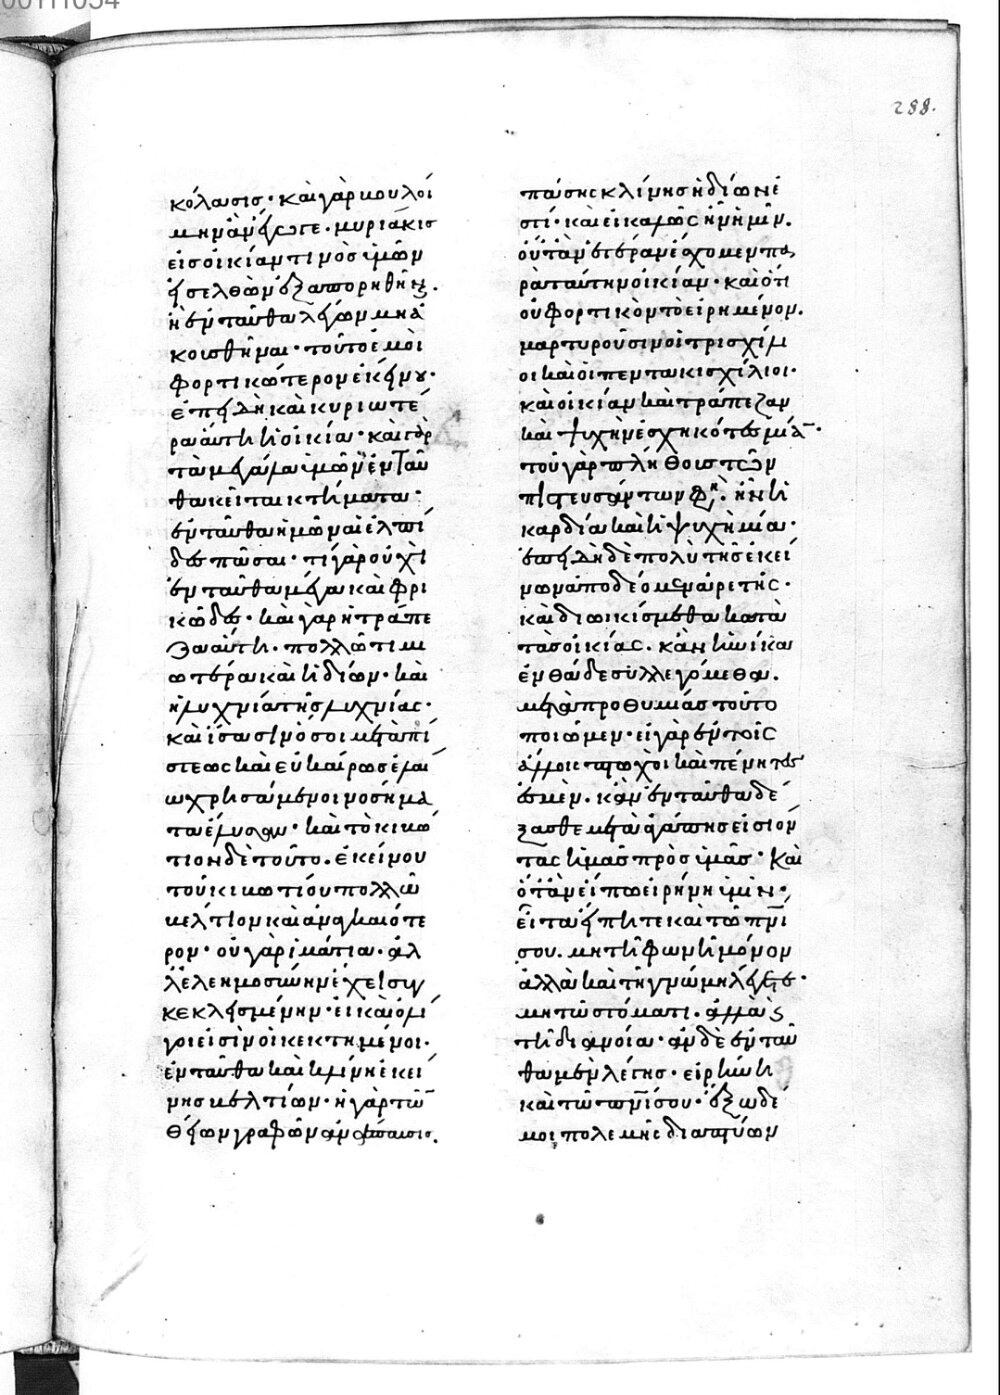 288.
κόλασις· καὶ γὰρ κουλοί
μην ἂν ἔγωγε· μυριάκις
εἰς οἰκίαν τινὸς ὑμῶν
εἰσελθὼν ἐξαπορηθῆναι.
ἢ ἐνταῦθα λέγων μὴ ἀ
κουσθῆναι· τοῦτο ἐμοὶ
φορτικώτερον ἐκείνου·
ἐπειδὴ καὶ κυριωτέ
ρα αὕτη ἡ οἰκία· καὶ γὰρ
τὰ μεγάλα ἡμῶν ἐνταῦ
θα κεῖται κτήματα·
ἐνταῦθα ἡμῶν αἱ ἐλπί
δες πᾶσαι· τί γὰρ οὐχὶ
ἐνταῦθα μέγα καὶ φρι
κῶδες· καὶ γὰρ ἡ τράπε
ζα αὕτη· πολλῷ τιμι
ωτέρα καὶ ἡδίων· καὶ
ἡ λυχνία τῆς λυχνίας·
καὶ ἴσασιν ὅσοι μετὰ πί
στεως καὶ εὐκαίρως ἐλαί
ω χρησάμενοι νοσήμα
τα ἔλυσαν· καὶ τὸ κιβώ
τιον δὲ τοῦτο· ἐκείνου
τοῦ κιβωτίου πολλῶ
βέλτιον καὶ ἀναγκαιότε
ρον· οὐ γὰρ ἱμάτια· ἀλ
λ' ἐλεημοσύνην ἔχει συγ
κεκλεισμένην· εἰ καὶ ὀλί
γοι εἰσὶν οἱ κεκτημένοι·
ἐνταῦθα καὶ κλίνη ἐκεί
νης βελτίων· ἡ γὰρ τῶν
θείων γραφῶν ἀνάπαυσις.
πάσης κλίνης ἡδίων ἐ
στί· καὶ εἰ καλῶς ἦν ἡμῖν.
οὐ τὰν ἑτέραν ἔσχομεν πα
ρὰ ταύτην οἰκίαν· καὶ ὅτι
οὐ φορτικὸν τὸ εἰρημένον.
μαρτυροῦσιν οἱ τρισχίλι
οι καὶ οἱ πεντακισχίλιοι·
καὶ οἰκίαν καὶ τράπεζαν
καὶ ψυχὴν ἐσχηκότες μίαν·
τοῦ γὰρ πλήθους τῶν
πιστευσάντων φησὶν. ἦν ἡ
καρδία καὶ ἡ ψυχὴ μία·
ἐπειδὴ δὲ πολὺ τῆς ἐκεί
νων ἀποδέομεν ἀρετῆς·
καὶ διωκίσμεθα κατὰ
τὰς οἰκίας. κἂν ἡνίκα
ἐνθάδε συλλεγόμεθα.
μετὰ προθυμίας τοῦτο
ποιῶμεν· εἰ γὰρ ἐν τοῖς
ἄλλοις πτωχοὶ καὶ πένητες
ἐσμέν. κἂν ἐνταῦθα δέ
ξασθε μετὰ ἀγάπης εἰσιόν
τας ἡμᾶς πρὸς ὑμᾶς· καὶ
ὅταν εἴπω εἰρήνη ὑμῖν·
εἶτα εἴπητε καὶ τῷ πνι
σου. μὴ τῇ φωνῇ μόνον
ἀλλὰ καὶ τῇ γνώμῃ λέγετε·
μὴ τῷ στόματι. ἀλλὰ καὶ
τῇ διανοία· ἂν δὲ ἐνταῦ
θα μὲν λέγης· εἰρήνη
καὶ τῷ πνι σου· ἔξω δέ
μοι πολεμῇς διαπτύων